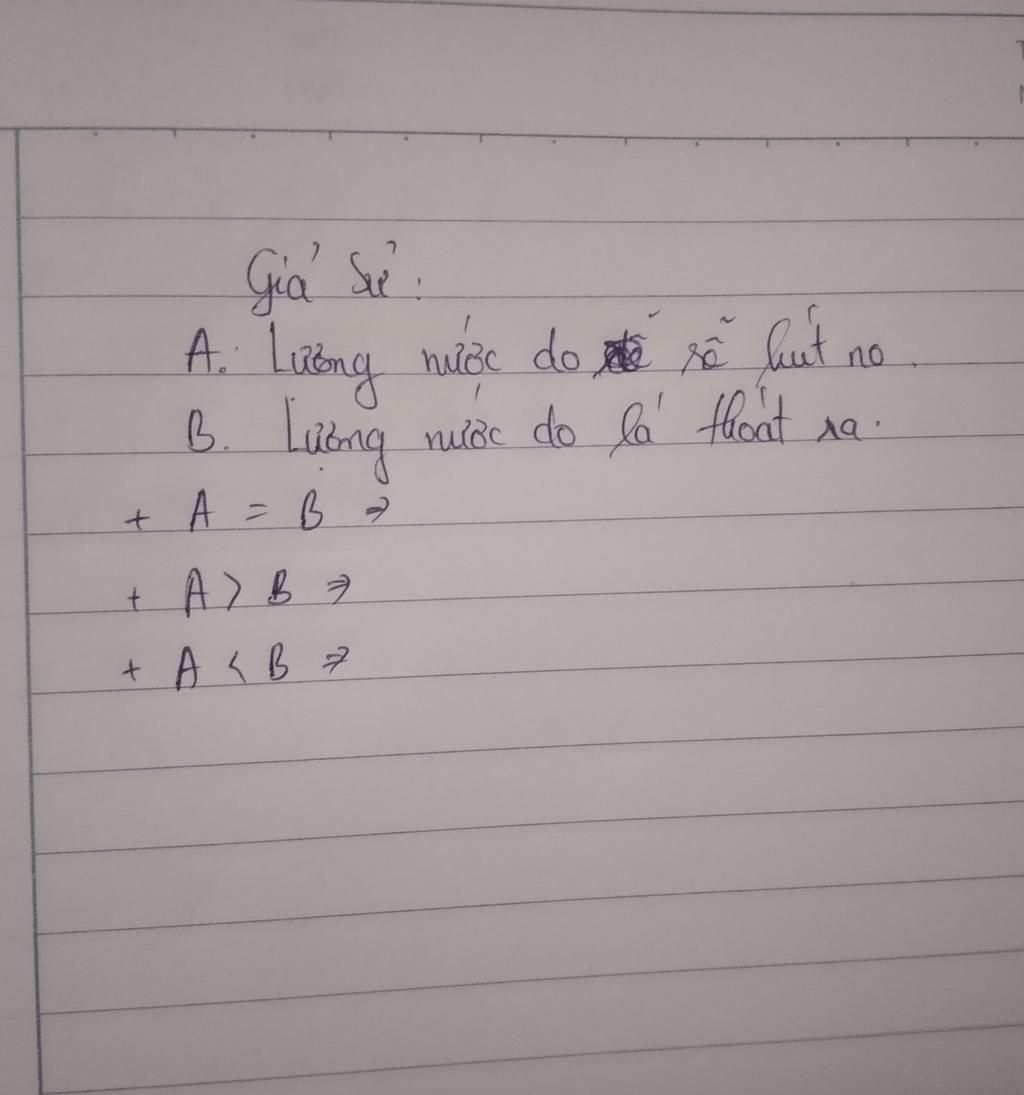 Giả sử:
A. Lượng nước do rễ hút no.
B. Lượng nước do lá thoát ra.
+ A = B ⇒
+ A > B ⇒
+ A < B ⇒